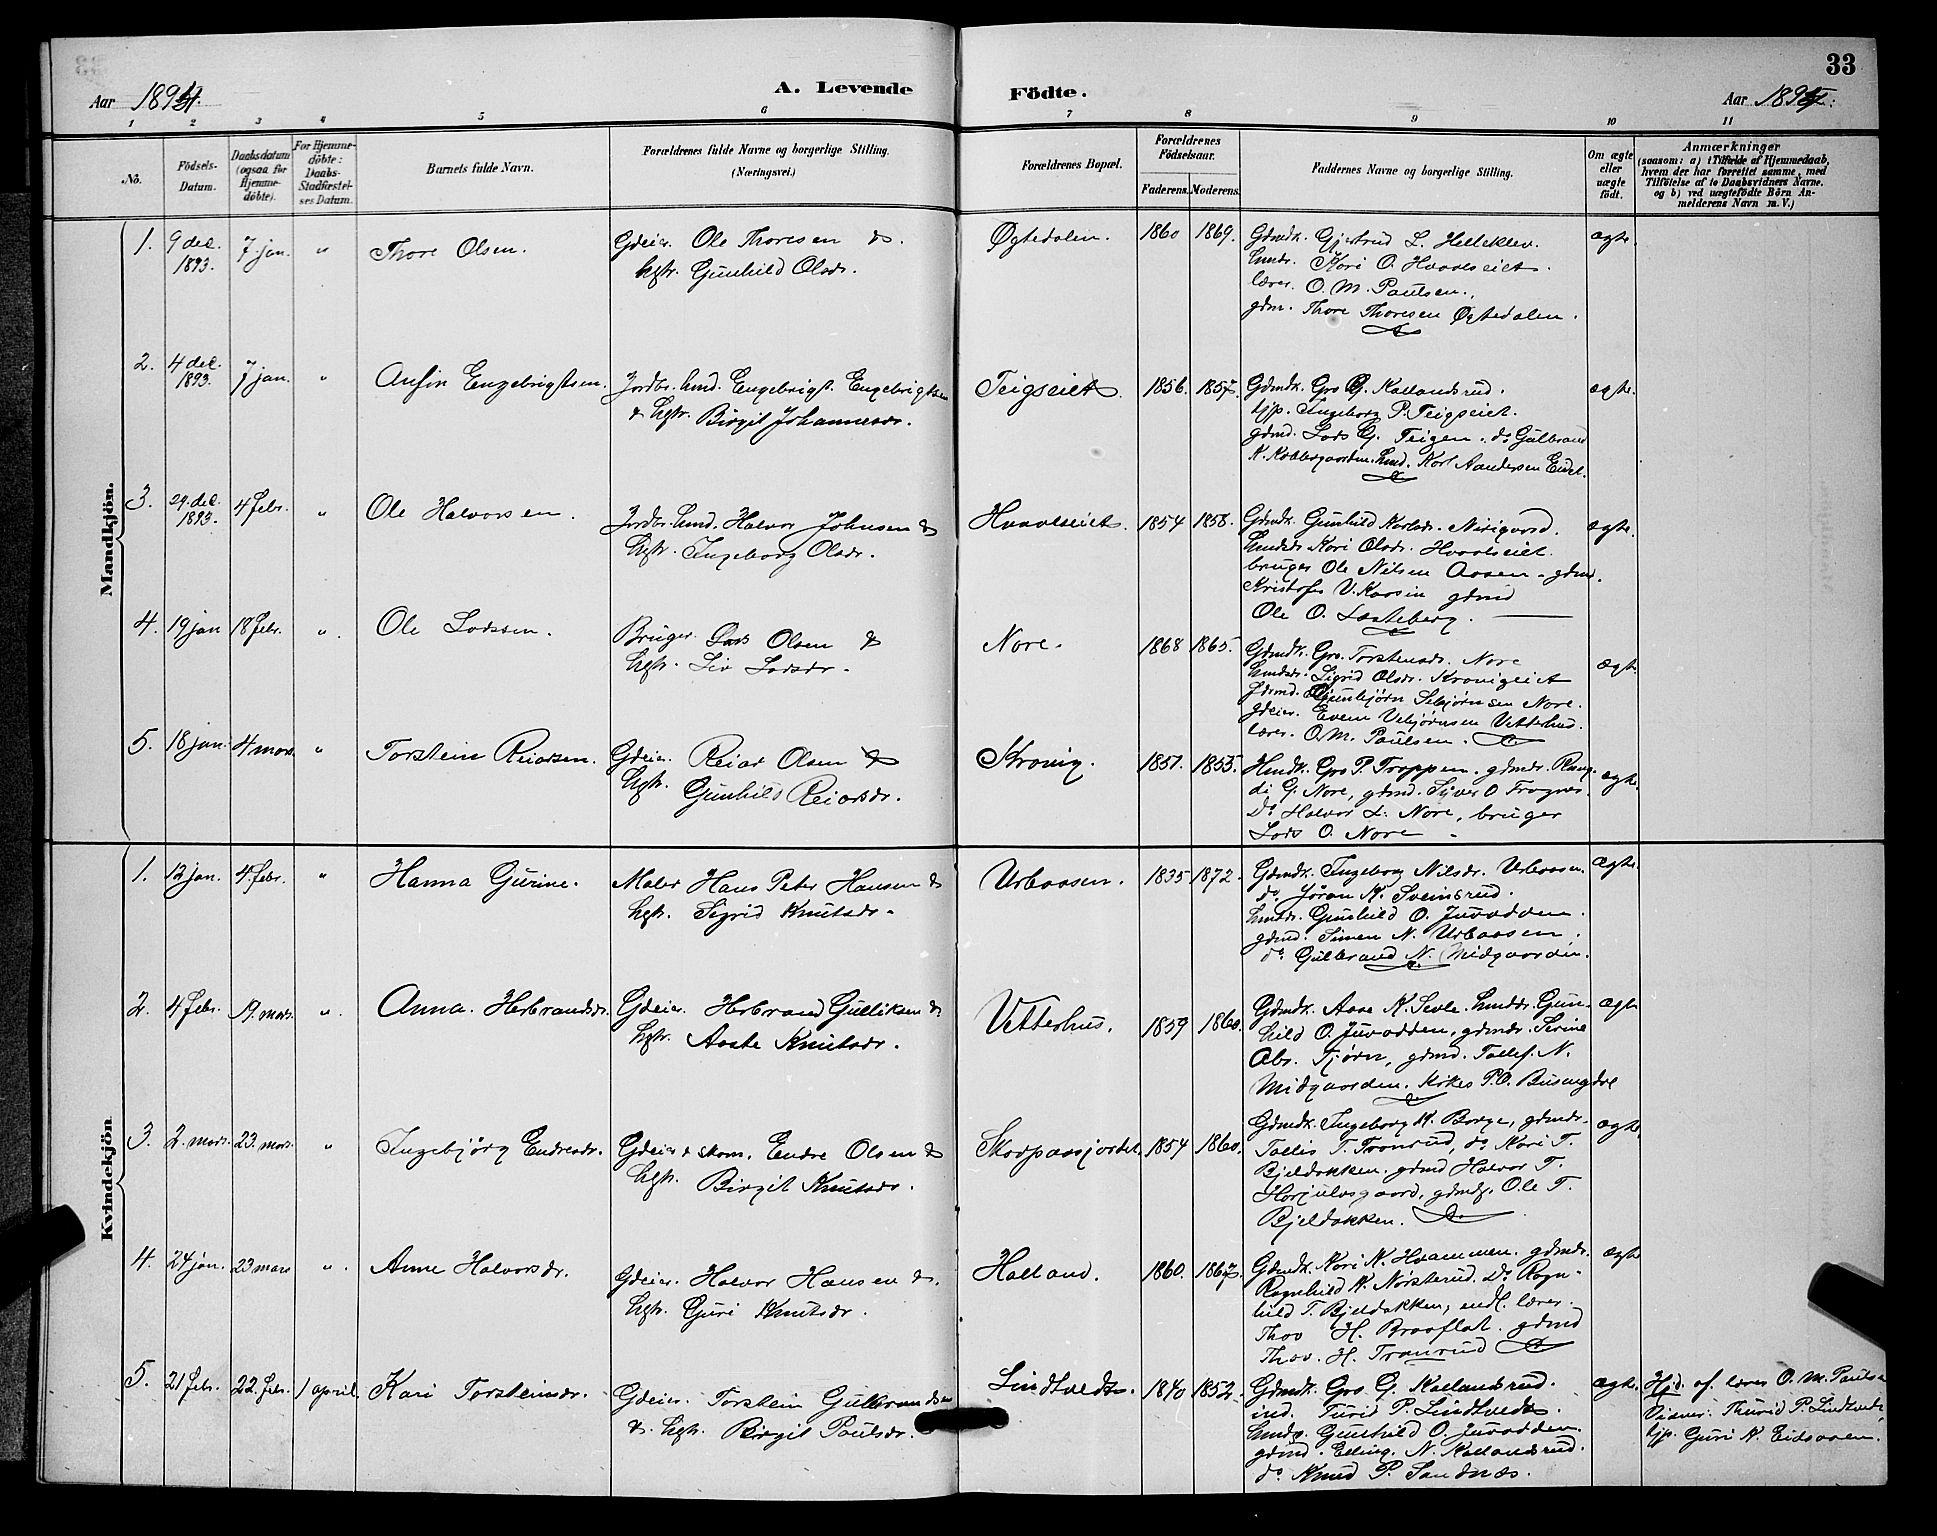 33
Aar 1894.
A. Levende
Födte.
Aar 1894.
1 2 3 4 5 6 7 8 9 10 11
No.
Födsels-
Datum.
Daabsdatum
(ogsaa for
Hjemme-
döbte).
For Hjemme-
döbte:
Daabs-
Stadfæstel-
ses Datum.
Barnets fulde Navn.
Forældrenes fulde Navne og borgerlige Stilling.
(Næringsvei.)
Forældrenes Bopæl.
Forældrenes
Födselsaar.
Faderens. Moderens.
Faddernes Navne og borgerlige Stilling.
Om ægte
eller
uægte
födt.
Anmærkninger
(saasom: a) i Tilfælde af Hjemmedaab,
hvem der har forrettet samme, med
Tilföielse af to Daabsvidners Navne,
og b) ved uægtefödte Börn An-
melderens Navn m. V.)
Mandkjön.
1. 9 dec. 1893. 7 jan. " Thore Olsen. Gdeier. Ole Thoresen &
hgtr. Gunhild Olsdr.
Øgtedalen. 1860 1869. Gdmdk. Gjertrud L. Helleklev.
hmdr. Kari O. Hvaalseiet.
lærer. O. M. Paulsen.,
gdm. Thore Thoresen Øgtedalen.
ægte.
2. 4 dec. 1893. 7 jan. " Anfin Engebrigtsen. Jordbr. hmd. Engebrigt Engebrigtsen
& hgtr. Birgit Johannesdr.
Teigseiet. 1856. 1857. Gdmdk. Gro G. Kallandsrud.
tjp. Ingeborg P. Teigseiet.
gdmd. Lars G. Teigen. do Gulbrand
K. Kobbergaarden. hmd. Karl Aandersen
ægte.
3. 29. dec. 1893. 4 febr. " Ole Halvorsen. Jordbr. hmd. Halvor Johnsen &
hgtr. Ingeborg Olsdr.
Hvaalseiet. 1854 1858. Gdmdk. Gunhild Karlsdr. Nirigaard.
hmdsdr Kari Olsdr. Hvaalseiet.
bruger Ole Nilsen Aasen - gdmd.
Kristofer V. Kaasin gdmd
Ole O. Laateberg.
ægte.
4. 19 jan 18 febr. " Ole Larssen. Bruger. Lars Olsen &
hgtr. Liv Larsdr.
Nore. 1868 1865. Gdmdk. Gro Torstensdr. Nore
hmdsdr. Sigrid Olsdr. Kravigeiet
gdmd. Gunbjørn Sebjørnsen Nore.
gdeier. Even Vebjørnsen Vetterhus.
lærer. O. M. Paulsen.
ægte.
5. 18 jan. 4 mars. " Torstein Reiarsen. Gdeier. Reiar Olsen &
hgtr. Gunhild Reiarsdr.
Kravig. 1851. 1855. Hmdk. Gro P. Troppen. gdmdr. Rang-
di G. Nore, gdmd. Syver O Fragnes
do Halvor L. Nore, bruger
Lars O. Nore
ægte.
Kvindekjön
1. 12 jan. 4. febr. " Hanna Gurine. Maler Hans Peter Hansen &
hgtr. Sigrid Knutsdr.
Urbaasen. 1835 1872. Gdmdk. Ingeborg Nilsdr. Urbaasen.
do Jøran K. Sveinsrud.
hmdr. Gunhild O. Juvadden.
gdmd. Simen N. Urbaasen.
do Gulbrand N. Midgaarden.
ægte.
2. 4 febr. 19. mars. " Anna Herbrandsdr. Gdeier. Herbrand Gulliksen &
hgtr. Aaste Knutsdr.
Vetterhus. 1859 1860. Gdmdk. Aase K. Sevle. hmdsdr. Gun-
hild O. Juvadden, gdmdr. Serine
Abr. Tjørn, gdmd. Tollef. N.
Midgaarden. kirkes. P. O. Busengdal
ægte
3. 2. mars. 23. mars. " Ingebjörg Endresdr. Gdeier & skom. Endre Olsen &
hgtr. Birgit Knutsdr.
Skarpaasjordet. 1854 1860. Gdmdk. Ingeborg K. Borge, gdmdr.
T. Tranrud, do Kari T.
Bjeldokken. gdmd Halvor T.
Horjulvsgaard, gdmds. Ole T.
Bjeldokken.
ægte.
4. 24 jan. 23 mars " Anne Halvorsdr. Gdeier. Halvor Hansen &
hgtr. Guri Knutsdr.
Halland. 1860. 1867. Gdmdk. Kari K. Hvammen. gdmdr.
Ragnhild K. Nørsterud. Do Ragn-
hild T. Bjeldokken, endl. lærer.
Thov H. Braaflat. gdmd
Thov. H. Tranrud
ægte
5. 21 febr. 22. febr. 1 april. Kari Torsteinsdr. Gdeier. Torstein Gulbrandsen
& hgtr. Birgit Paulsdr.
Lindtvedt. 1840 1852. Gdmdk. Gro G. Kallandsrud.
ind. Turid P. Lindtvedt.
hmdr. Gunhild O. Juvadden.
gdmd. Elling N. Kallandsrud.
do Knud P. Sandnæs.
ægte. Hjd. af lærer O. M. Paulsen
Vidner: Thurid P. Lindtvedt,
tjp. Guri K. Eidsaaen.